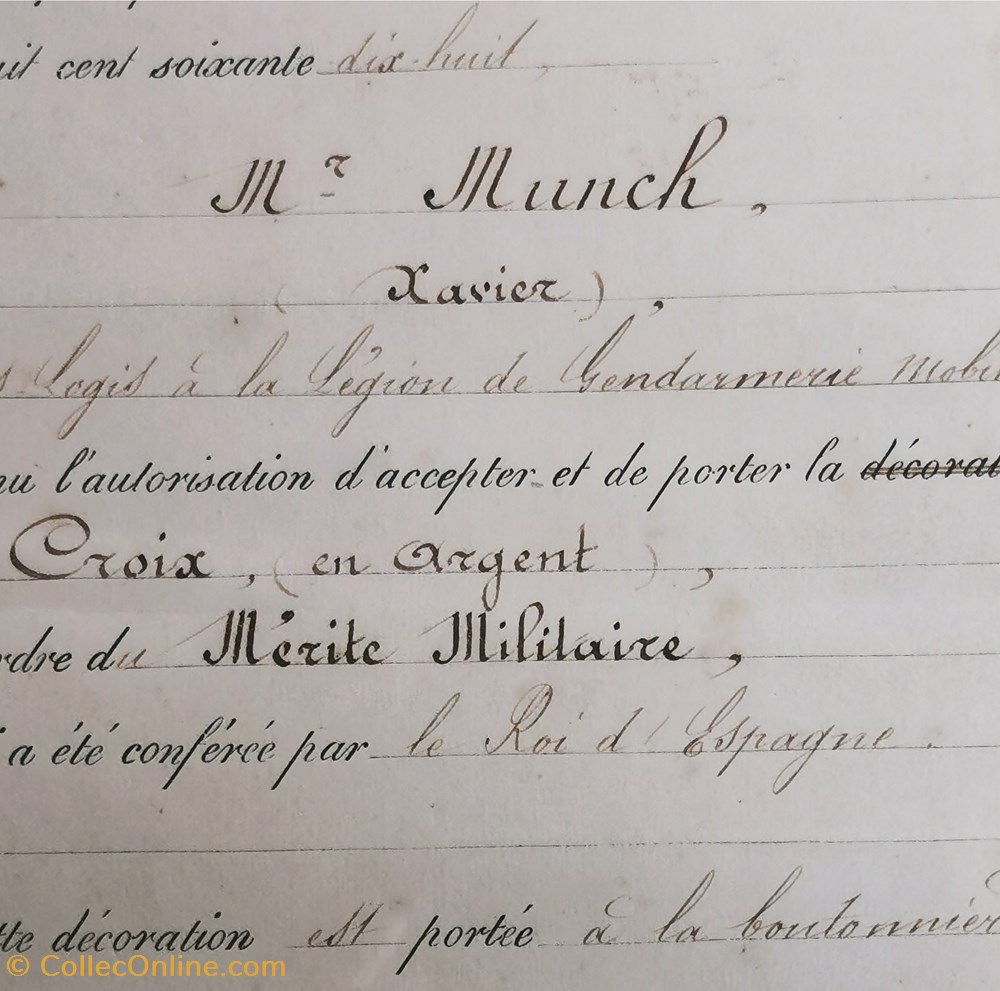 uit cent soixante dix-huit,
Mr Munch,
(Xavier),
s Logis à la Légion de Gendarmerie Mobi
nu l'autorisation d'accepter et de porter la décorat
Croix, (en Argent),
rdre du Mérite Militaire,
a été conférée par le Roi d'Espagne.
tte décoration est portée à la boutonnièr
© CollecOnline.com